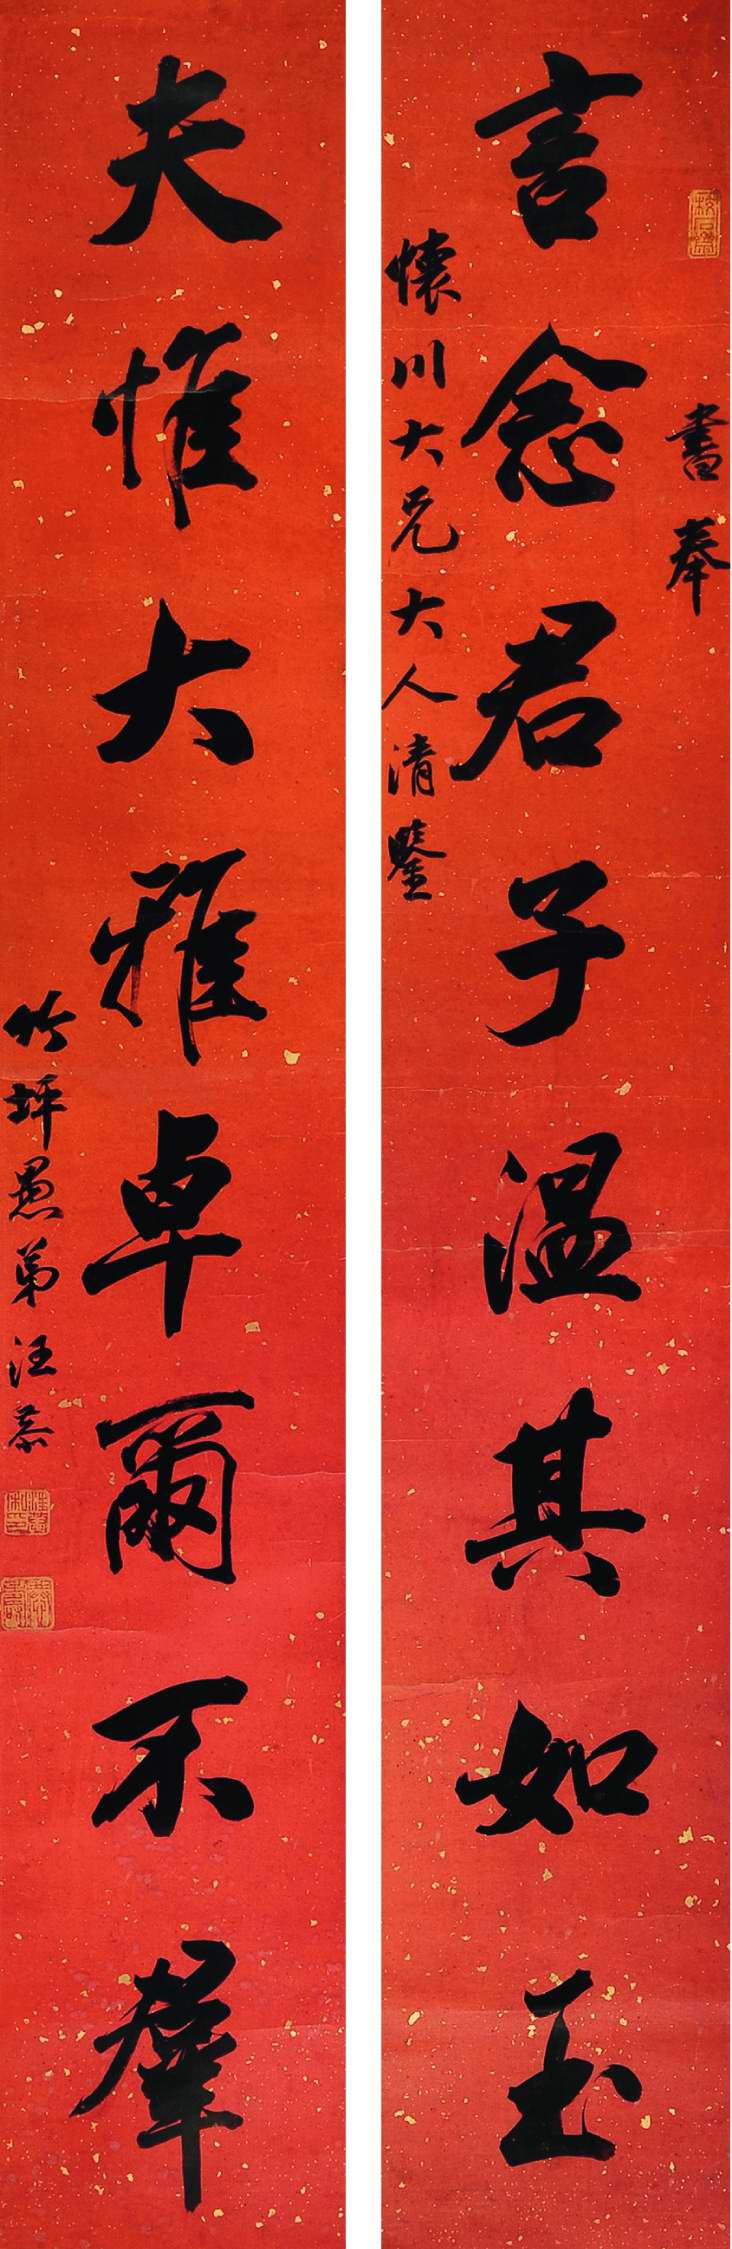 書奉
言念君子溫其如玉
懷川大兄大人清鑒
夫惟大雅卓爾不羣
竹坪愚弟汪恭